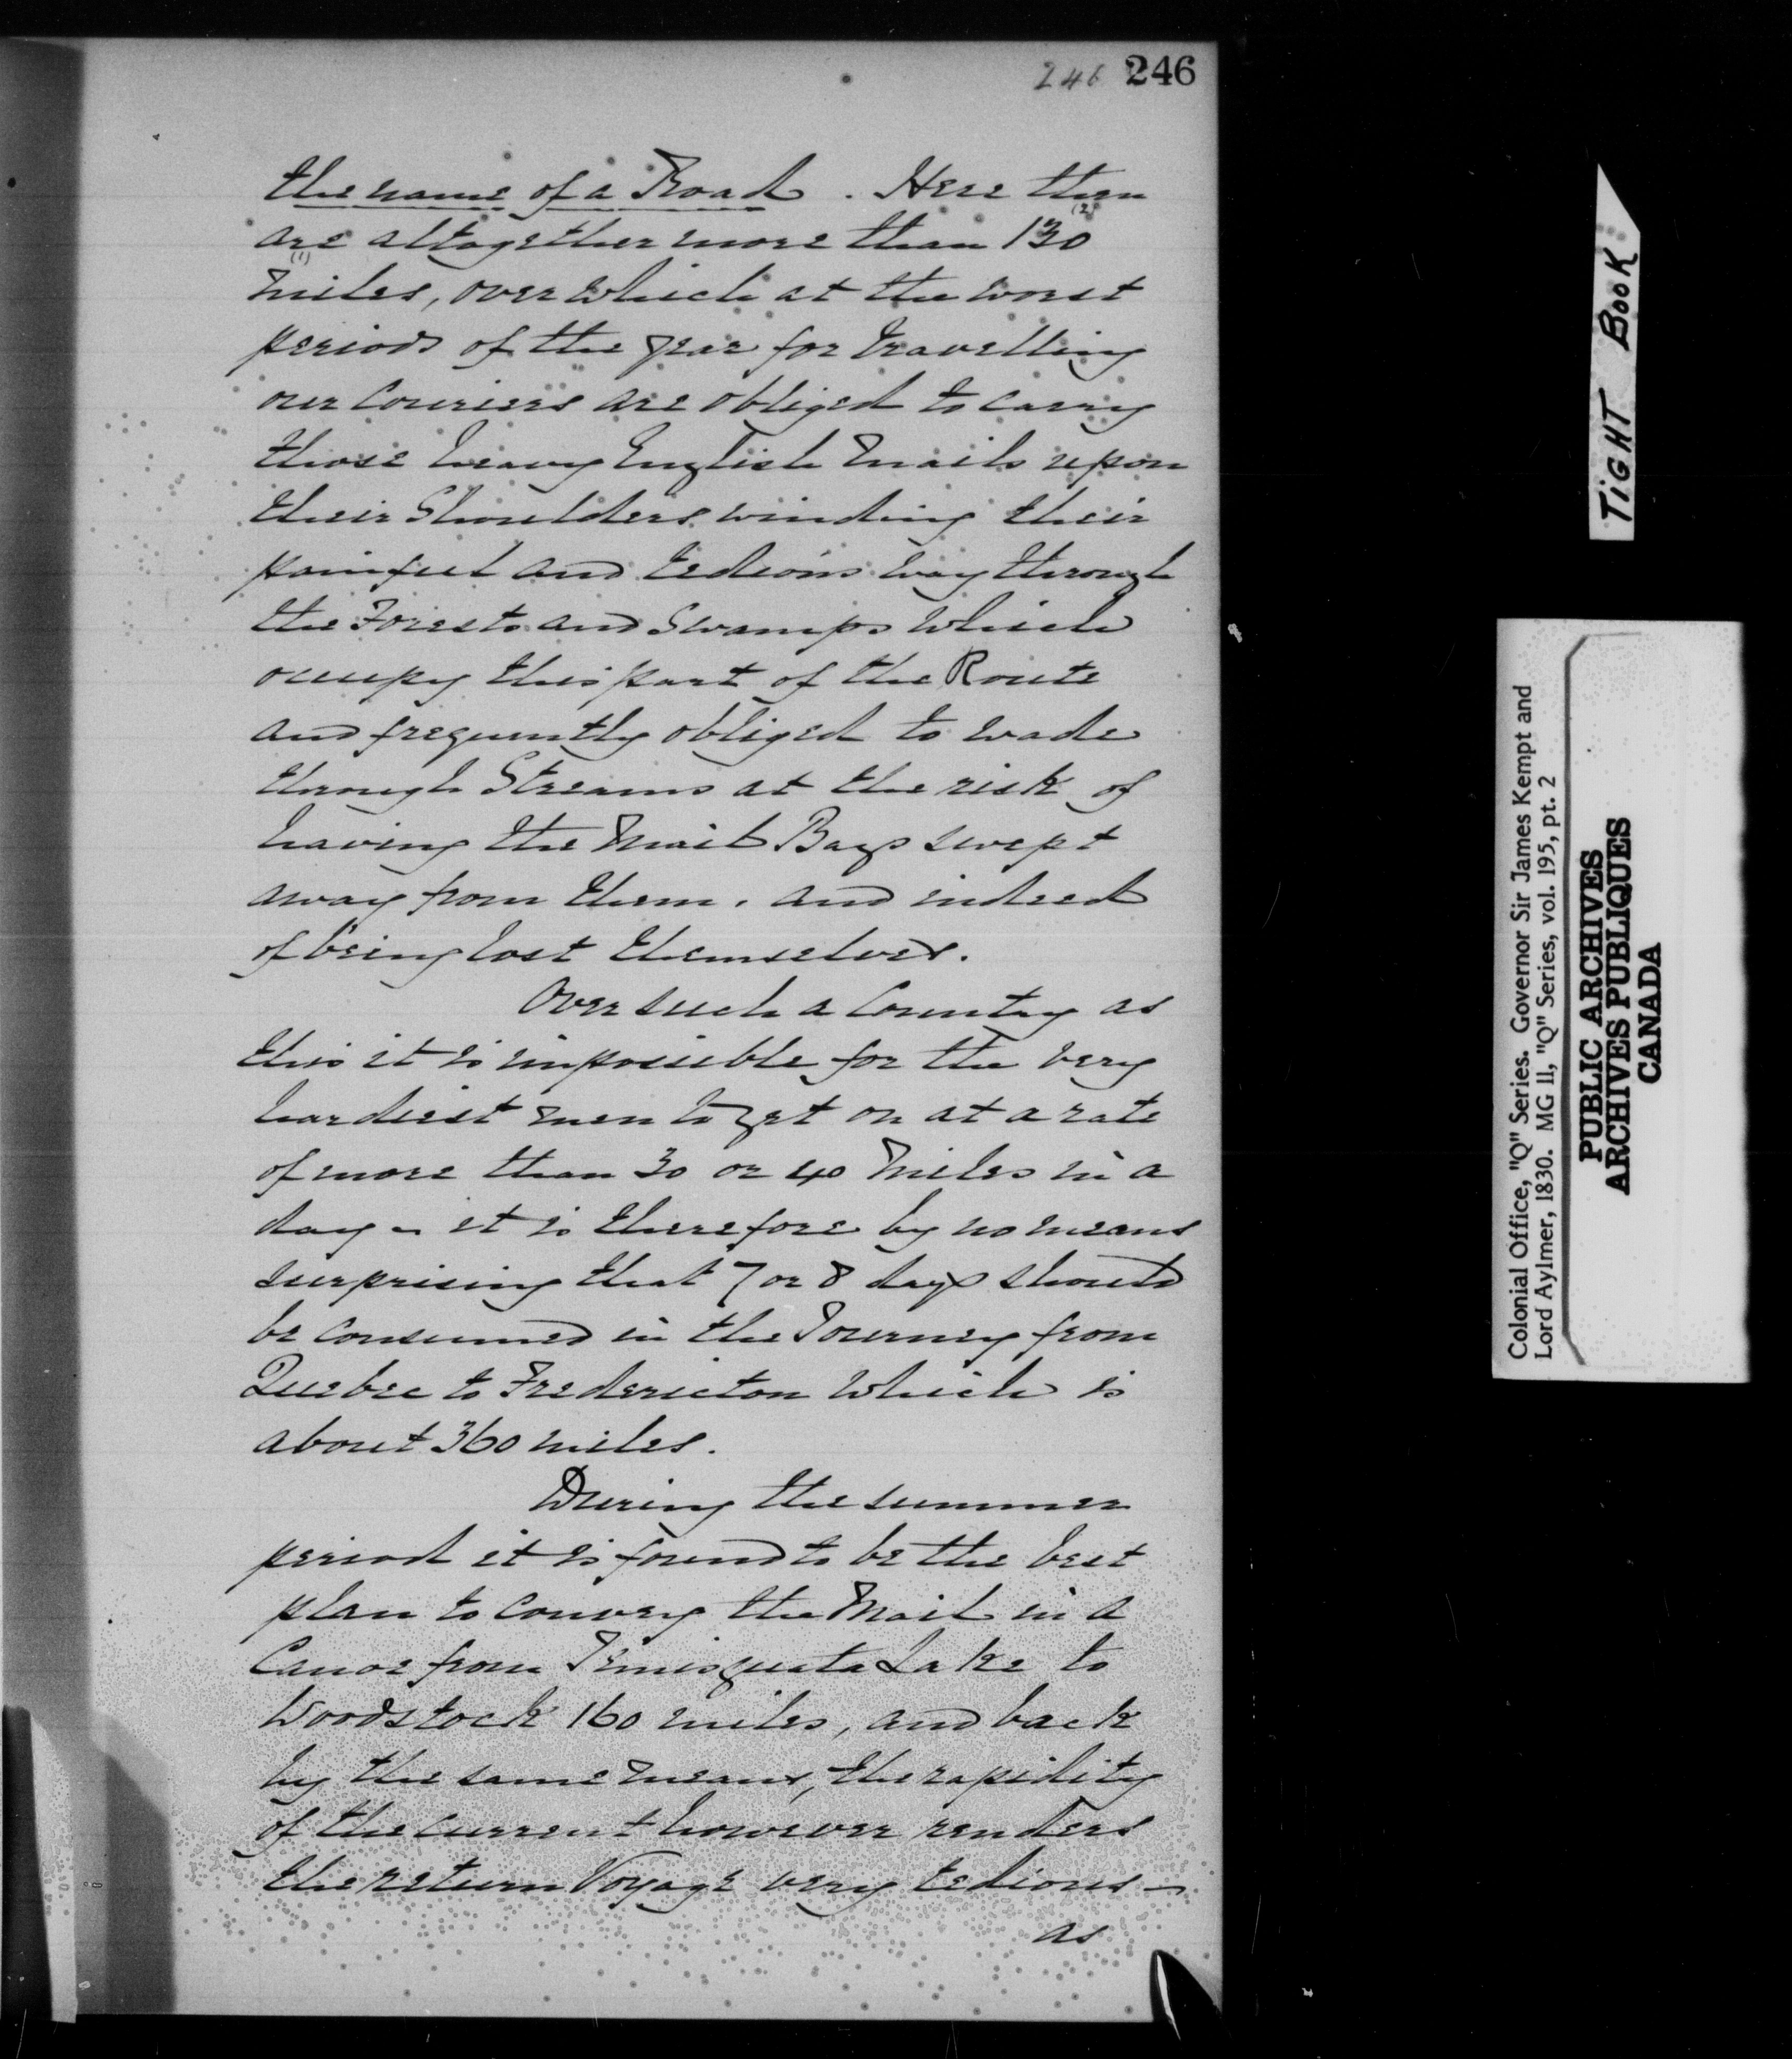 246 246
the name of a Road. Here then
are altogether more than 130 (2)
(1)
miles, over which at the worst
periods of the year for travelling
our Couriers are obliged to carry
those heavy English Mails upon
their Shoulders winding their
painful and tedious way through
the Forests and Swamps which
occupy this part of the Route
and frequently obliged to wade
through Streams at the risk of
having the Mail Bags swept
away from them, and indeed
of being lost themselves.
Over such a Country as
this it is impossible for the very
hardiest men to get on at a rate
of more than 30 or 40 Miles in a
day – it is therefore by no means
surprising that 7 or 8 days should
be consumed in the Journey from
Quebec to Fredericton which is
about 360 miles.
During the summer
period it is found to be the best
plan to convey the Mail in a
Canoe from Timisquata Lake to
Woodstock 160 miles, and back
by the same means, the rapidity
of the current however renders
the return Voyage very tedious –
as
TIGHT BOOK
Colonial Office, "Q" Series. Governor Sir James Kempt and
Lord Aylmer, 1830. MG 11, "Q" Series, vol. 195, pt. 2
PUBLIC ARCHIVES
ARCHIVES PUBLIQUES
CANADA